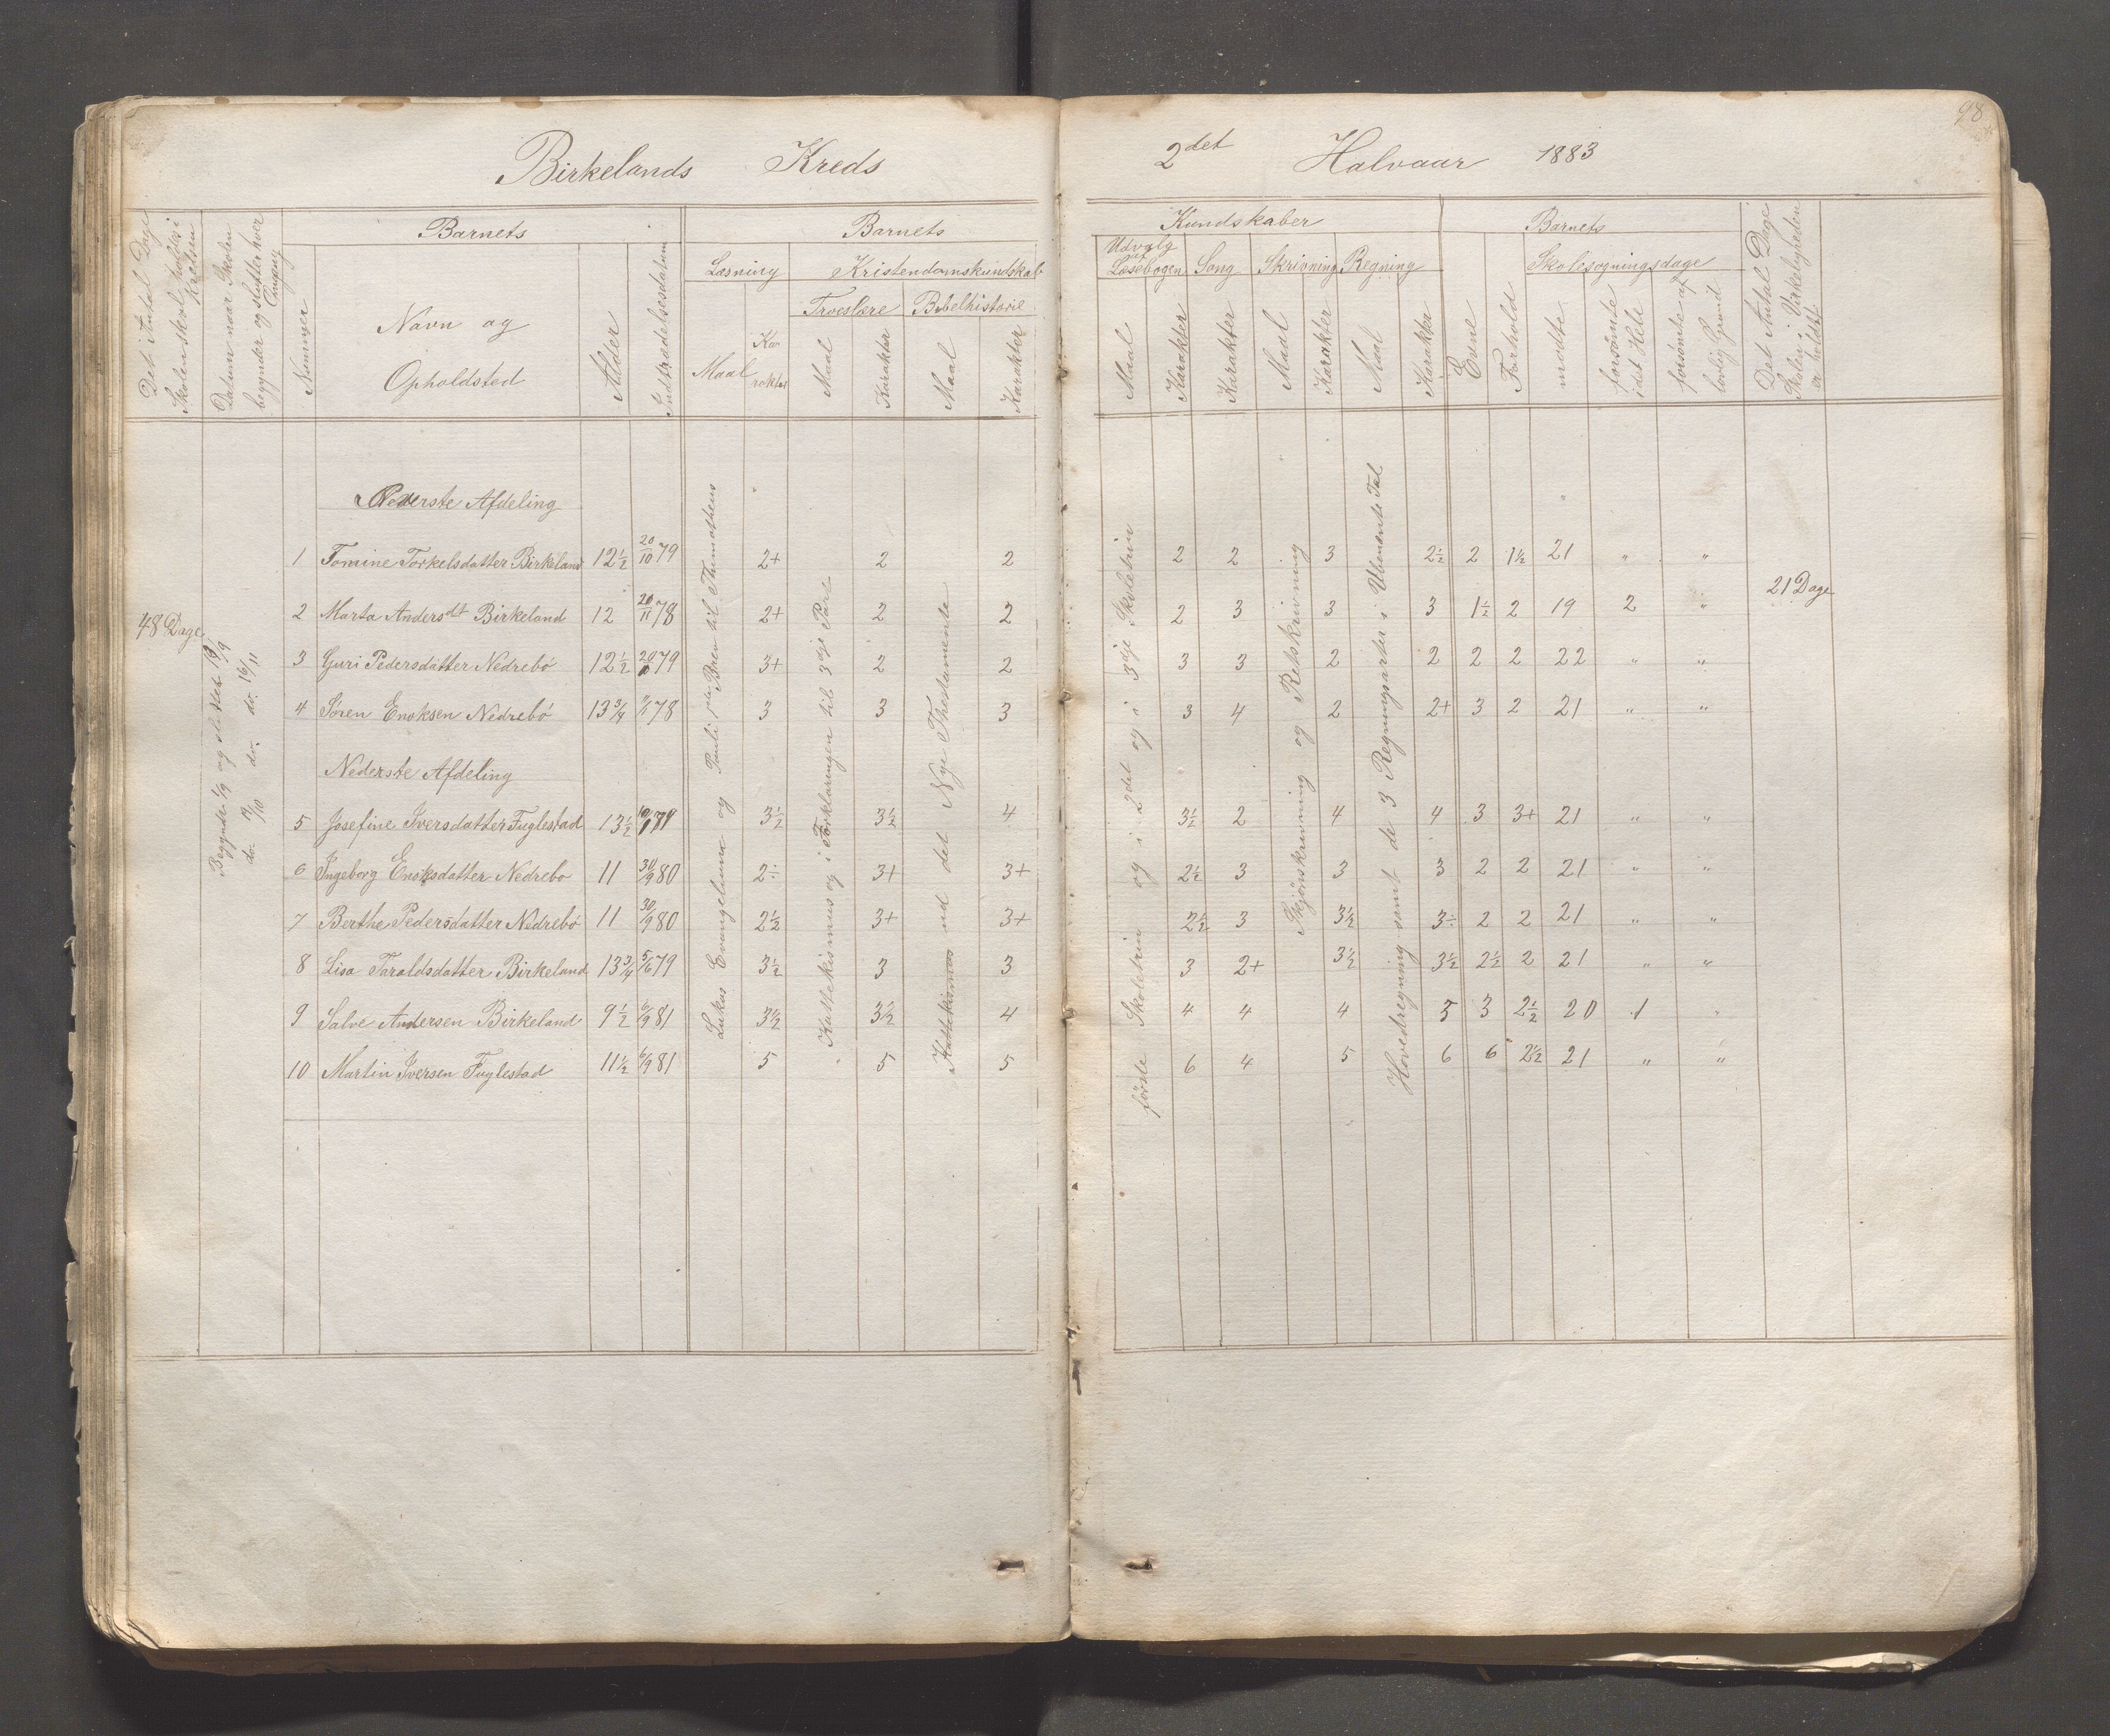 98
Birkelands Kreds
2det Halvaar 1883
Det Antal Dage Skolen skal holdes i Kredsen
Datum naar Skolen begynder og slutter hver Omgang
Barnets
Nummer
Navn og Opholdsted
Alder
Indtrædelsesdatum
Barnets
Læsning
Kristendomskundskab
Troeslære
Bibelhistorie
Maal
Karakter
Maal
Karakter
Maal
Karakter
Kundskaber
Udvalg af Læsebogen
Sang
Skrivning
Regning
Maal
Karakter
Karakter
Maal
Karakter
Maal
Karakter
Barnets
Evne
Forhold
Skolesøgningsdage
mødte
forsömte i det Hele
forsömte af lovlig Grund
Det Antal Dage Skolen i Virkeligheden er holdt
48 Dage
do. do. do. 16/11
Afdeling
1 Tomine Torkelsdatter Birkeland 12½ 20/10 79 2+ 2 2 2 2 3 2½ 2 1½ 21 " "
2 Marta Andersdt Birkeland 12 20/11 78 2+ 2 2 2 3 3 3 1½ 2 19 2 "
3 Guri Pedersdatter Nedrebö 12½ 20/10 79 3+ 2 2 3 3 2 2 2 2 22 " "
4 Sören Enoksen Nedrebö 13¾ 11/11 78 3 3 3 3 4 2 2+ 3 2 21 " "
Nederste Afdeling
5 Josefine Iversdatter Fuglestad 13½ 79 3½ 3½ 4 3½ 2 4 4 3 3+ 21 " "
6 Ingeborg Enoksdatter Nedrebo 11 30/9 80 2÷ 3+ 3+ 2½ 3 3 3 2 2 21 " "
7 Berthe Pedersdatter Nedrebö 11 30/9 80 2½ 3+ 3+ 2½ 3 3½ 3÷ 2 2 21 " "
8 Lisa Taraldsdatter Birkeland 13¾ 5/6 79 3½ 3 3 3 2+ 3½ 3½ 2½ 2 21 " "
9 Salve Andersen Birkeland 9½ 6/9 81 3½ 3½ 4 4 4 4 5 3 2½ 20 1 "
10 Martin Iversen Fuglestad 11½ 6/9 81 5 5 5 6 4 5 6 6 2½ 21 " "
21 Dage
Lukas Evangelium og Pauli Brev til Thimotheus
Kattekismus og i Forklaringen til 3die Part
Kattekismus ud det Nye Thestamente
første Skoletrin og i 2det og i 3die Skoletrin
Skjönskrivning og Retskrivning
Hovedregning samt de 3 Regningsarter i Ubenævnte Tal